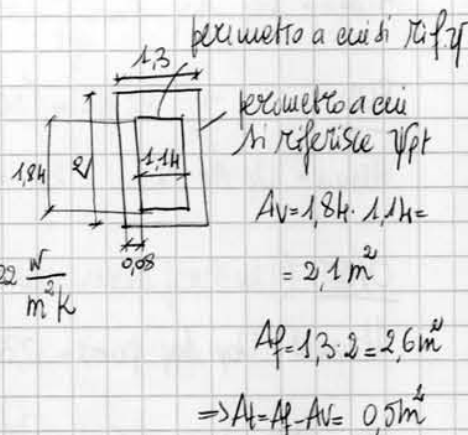 perimetro a cui si rif. ψ
1,3
perimetro a cui
si riferisce ψpt
1,84
2
1,14
0,08
Av=1,84·1,14=
= 2,1 m²
22 W/m²K
Af=1,3·2=2,6m²
=>At=Af-Av= 0,5m²